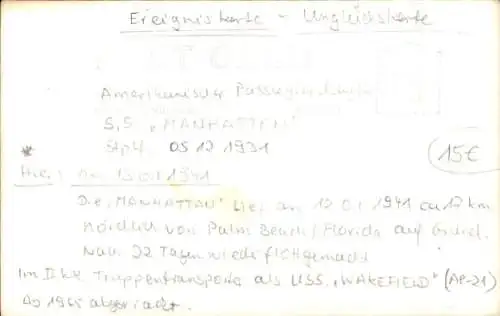 Ereigniskarte - Unglückskarte
Amerikanischer Passagierdampfer
S.S. „MANHATTEN"
Stpl. 05 12 1931
15€
Hier: Am 13.01.1941
Die „MANHATTAN" lief am 12.01.1941 ca 17 km
nördlich von Palm Beach/Florida auf Grund.
Nach 22 Tagen wieder flottgemacht
Im II. WK Truppentransporter als USS. „WAKEFIELD" (AP-21)
Ab 1965 abgewrackt.